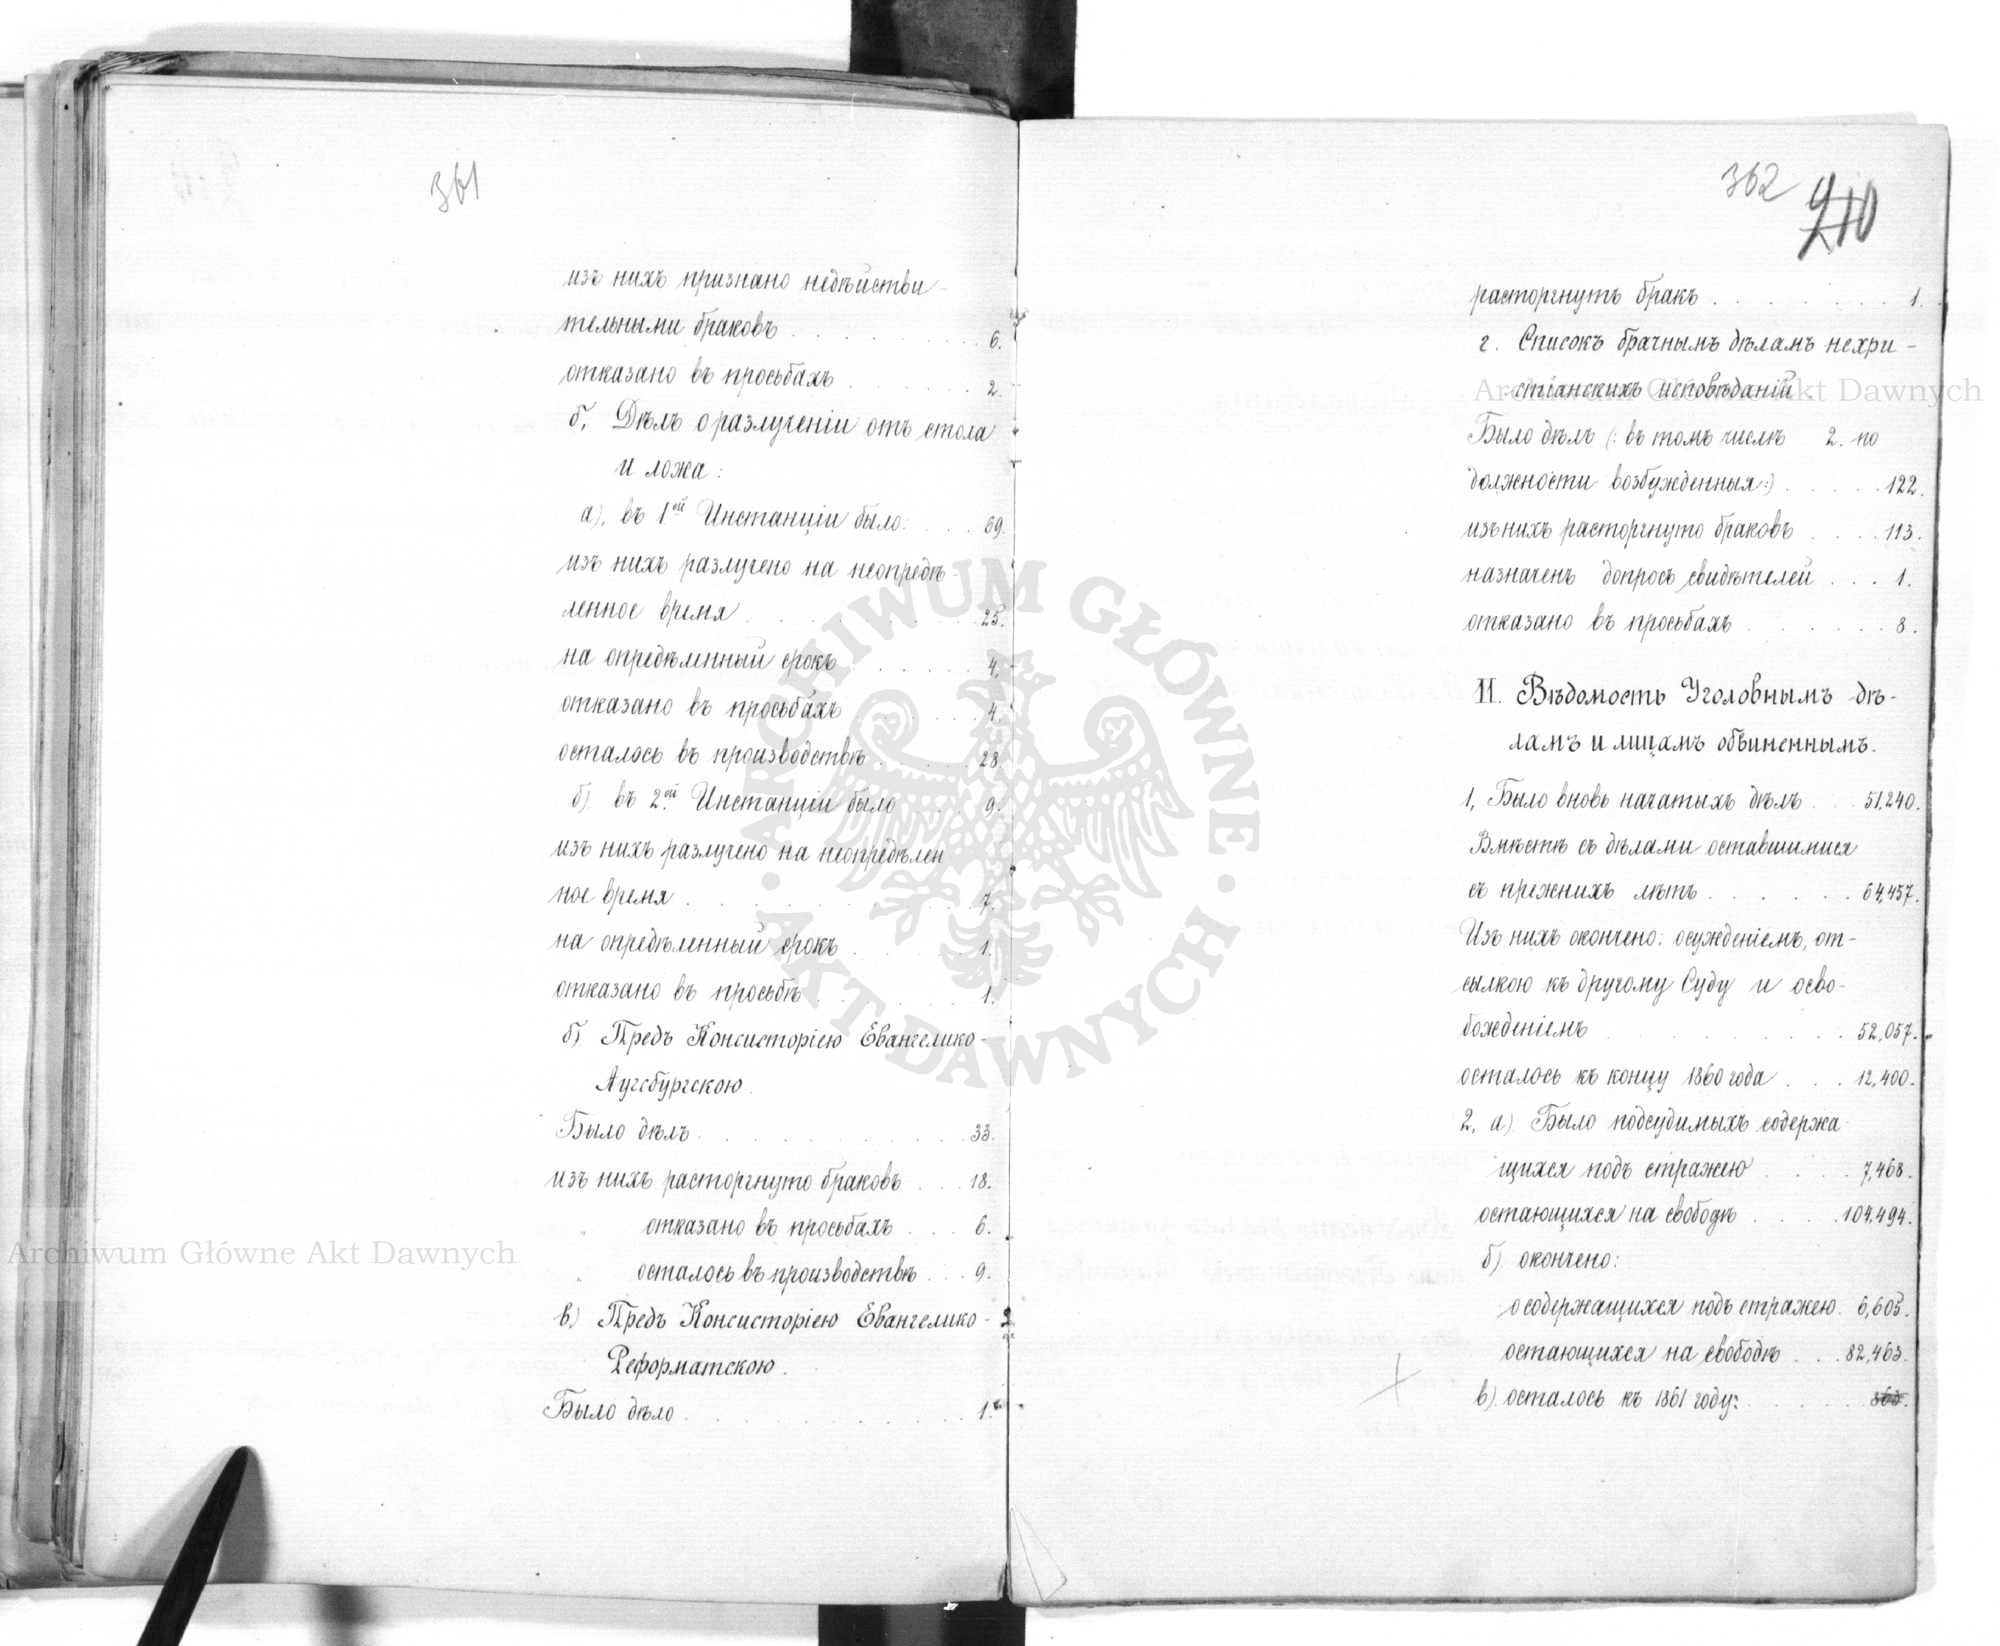 361
изъ нихъ признано недѣйстви-
тельными браковъ . . . . . . . . 6.
отказано въ просьбахъ . . . . . . 2.
б, Дѣлъ о разлученіи отъ стола
и ложа:
а), въ 1ой Инстанціи было: . . . 69.
изъ нихъ разлучено на неопредѣ-
ленное время . . . . . . . . . 25.
на опредѣленный срокъ . . . . . . 4.
отказано въ просьбахъ . . . . . . 4.
осталось въ производствѣ . . . . . 28.
б) въ 2ой Инстанціи было . . . 9.
изъ нихъ разлучено на неопредѣлен
ное время . . . . . . . . . . 7.
на опредѣленный срокъ . . . . . . 1.
отказано въ просьбѣ . . . . . . . 1.
б) Предъ Консисторіею Евангелико-
Аугсбургскою.
Было дѣлъ: . . . . . . . . . . 33.
изъ нихъ расторгнуто браковъ . . . 18.
" отказано въ просьбахъ . . . 6.
" осталось въ производствѣ . . . 9.
в) Предъ Консисторіею Евангелико-
Реформатскою.
Было дѣло . . . . . . . . . . 1.
362 210
расторгнутъ бракъ . . . . . . . 1.
г. Списокъ брачнымъ дѣламъ нехри-
стіанскихъ исповѣданій.
Было дѣлъ (: въ томъ числѣ 2. по
должности возбужденныя:) . . . . . 122.
изъ нихъ расторгнуто браковъ . . . . 113.
назначенъ допросъ свидѣтелей . . . 1.
отказано въ просьбахъ . . . . . . 8.
II. Вѣдомость Уголовнымъ дѣ-
ламъ и лицамъ обвиненнымъ.
1, Было вновь начатыхъ дѣлъ . . . 51,240.
Вмѣстѣ съ дѣлами оставшимися
съ прежнихъ лѣтъ . . . . . . 64,457.
Изъ нихъ окончено: осужденіемъ, от-
сылкою къ другому Суду и осво-
божденіемъ . . . . . . . . . 52,057.
осталось къ концу 1860 года . . . 12,400.
2, а) Было подсудимыхъ содержа-
щихся подъ стражею . . . . . 7,468.
остающихся на свободѣ . . . . . 104,494.
б) окончено:
о содержащихся подъ стражею. 6,605.
остающихся на свободѣ . . . 82,463.
в) осталось къ 1861 году: . . . . . 363.
Archiwum Główne Akt Dawnych
Archiwum Główne Akt Dawnych
ARCHIWUM GŁÓWNE
AKT DAWNYCH